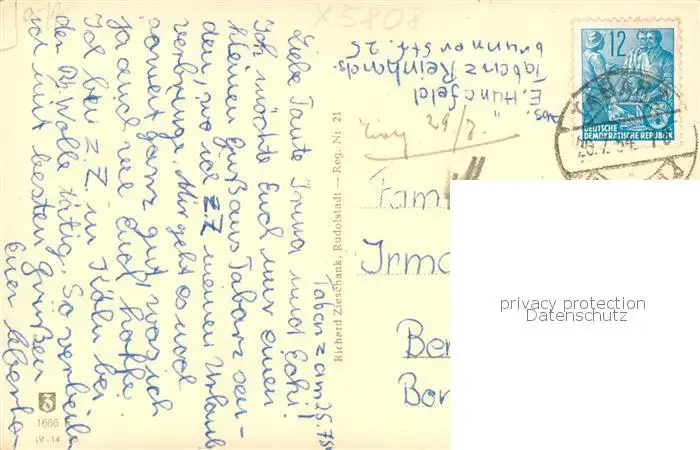 X5808
Tabarz am 25.7.54
Liebe Tante Irma und Echi!
Ich möchte Euch nur einen
kleinen Gruß aus Tabarz sen-
den, wo ich z.Z. meinen Urlaub
verbringe. Mir geht es noch
soweit ganz gut, was ich
ja auch von Euch hoffe.
Ich bin z.Z. in Köln bei
der Rh. Wolle tätig. So verbleibe
ich mit besten Grüßen
Euer
Abs.
E. Hünefeld
Tabarz Reinhards-
brunner Str. 26
29/7.
12
DEUTSCHE
DEMOKRATISCHE REPUBLIK
TABARZ
Fam
Irma
Ber
Bor
privacy protection
Datenschutz
Richard Zieschank, Rudolstadt — Reg. Nr. 21
3
1666
IV-14